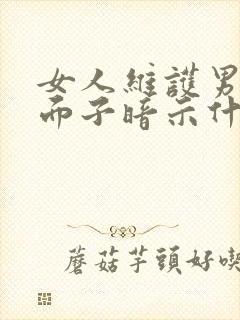 女人維護男
面子暗示什
蘑菇芋頭好喫